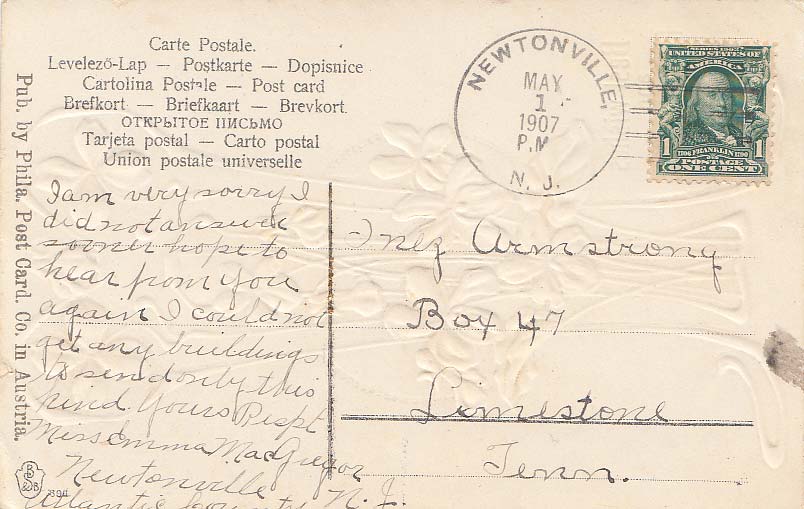 Carte Postale.
Levelező-Lap — Postkarte — Dopisnice
Cartolina Postale — Post card
Brefkort — Briefkaart — Brevkort.
ОТКРЫТОЕ ПИСЬМО
Tarjeta postal — Carto postal
Union postale universelle
Pub. by Phila. Post Card. Co. in Austria.
NEWTONVILLE,
MAY
1
1907
P.M
N. J.
SERIES 1902
UNITED STATES OF
AMERICA
1706 FRANKLIN 1790
1 POSTAGE 1
ONE CENT
I am very sorry I
did not answer
sooner hope to
hear from you
again I could not
get any buildings
to send only this
kind. Yours Respt
Miss Emma MacGregor
Newtonville
Atlantic County N. J.
Inez Armstrong
Box 47
Limestone
Tenn.